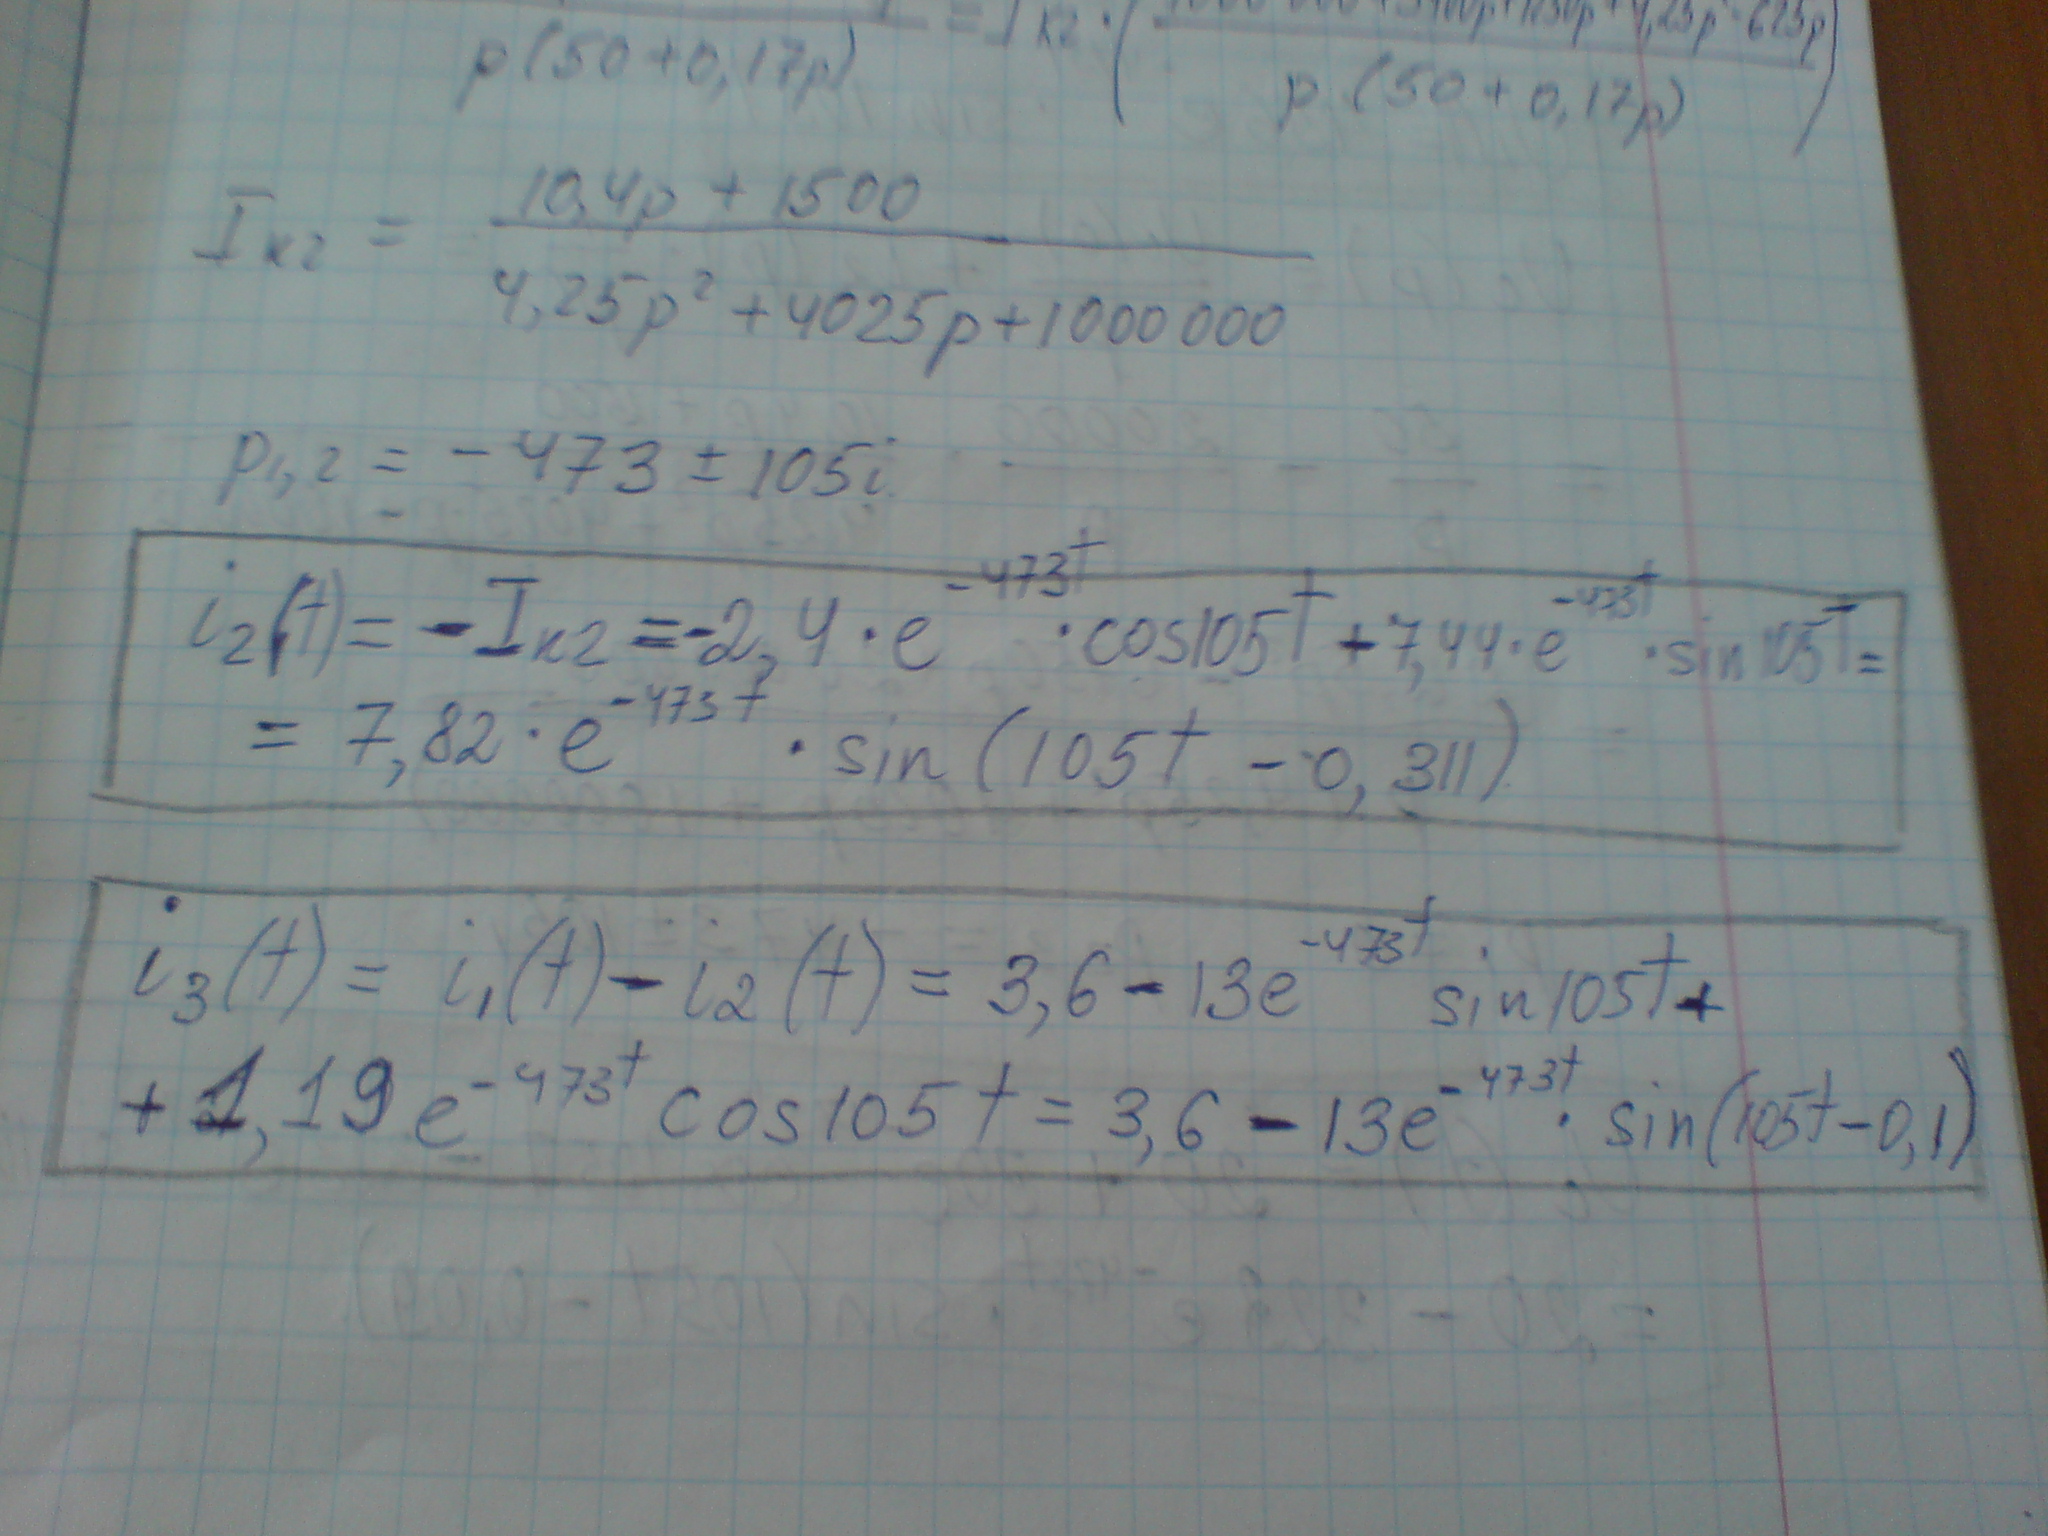 p(50+0,17p) = Iк2 · ( 1000 000 + 3400p + 1250p + 4,25p² - 625p
p (50 + 0,17p) )
Iк2 = 10,4p + 1500
4,25p² + 4025p + 1000 000
p1,2 = - 473 ± 105i
i2(t) = - Iк2 = -2,4 · e^-473t · cos105t + 7,44 · e^-473t · sin 105t =
= 7,82 · e^-473t · sin (105t - 0,311)
i3(t) = i1(t) - i2(t) = 3,6 - 13e^-473t sin 105t +
+ 1,19 e^-473t cos 105t = 3,6 - 13e^-473t · sin(105t - 0,1)